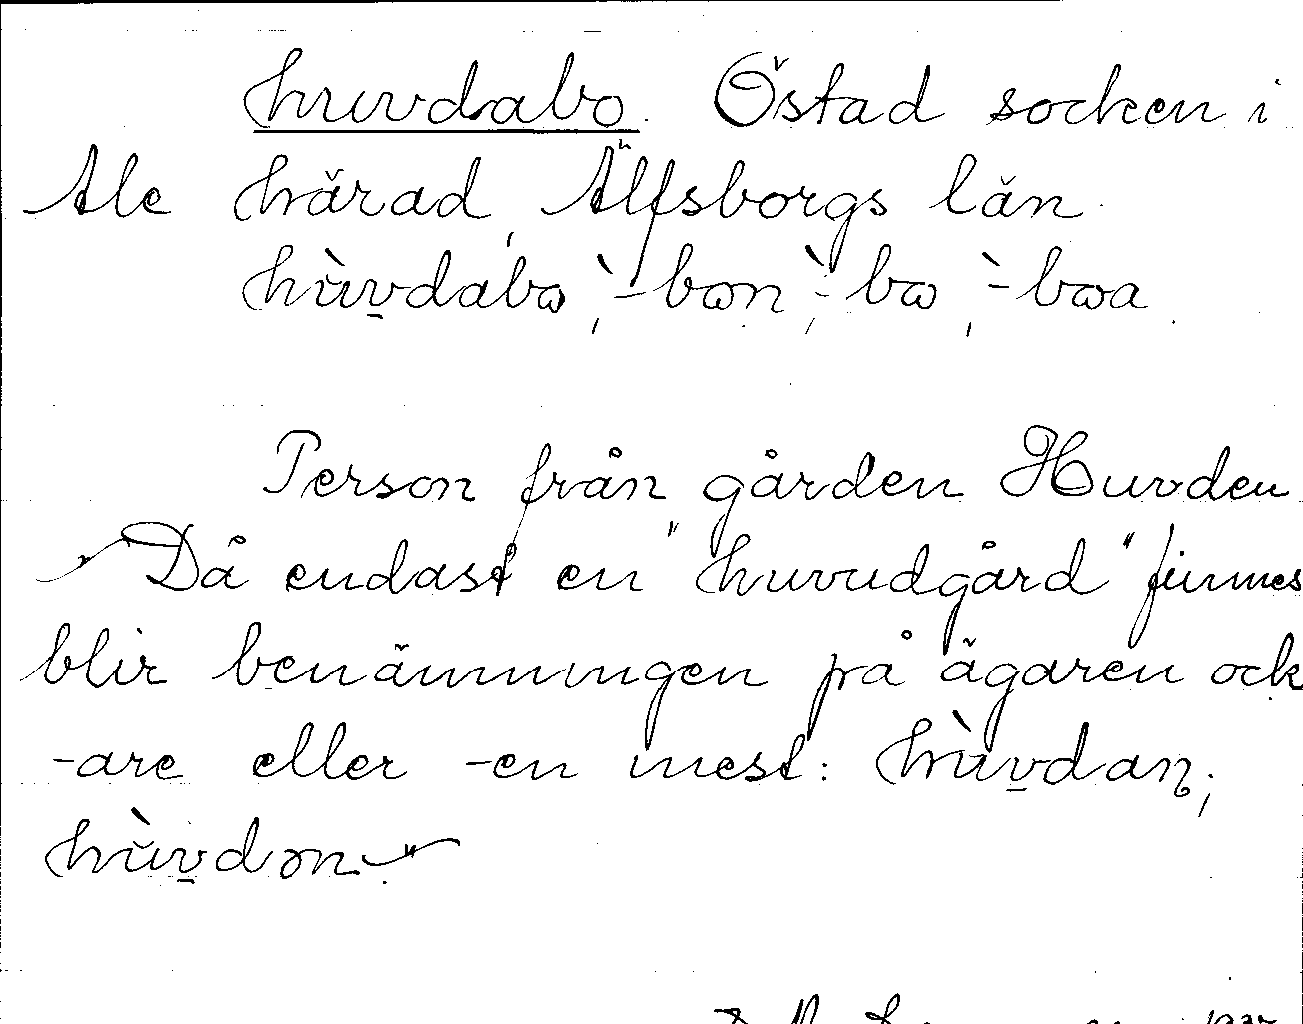 huvdabo. Östad socken i
Ale härad, Älfsborgs län.
hùvdabɷ, `-bɷn, `-bɷ, `-bɷa.
Person från gården Huvden.
"Då endast en "huvudgård" finnes
blir benämningen på ägaren ock
-are eller -en mest: hùvdan,
hùvdən"